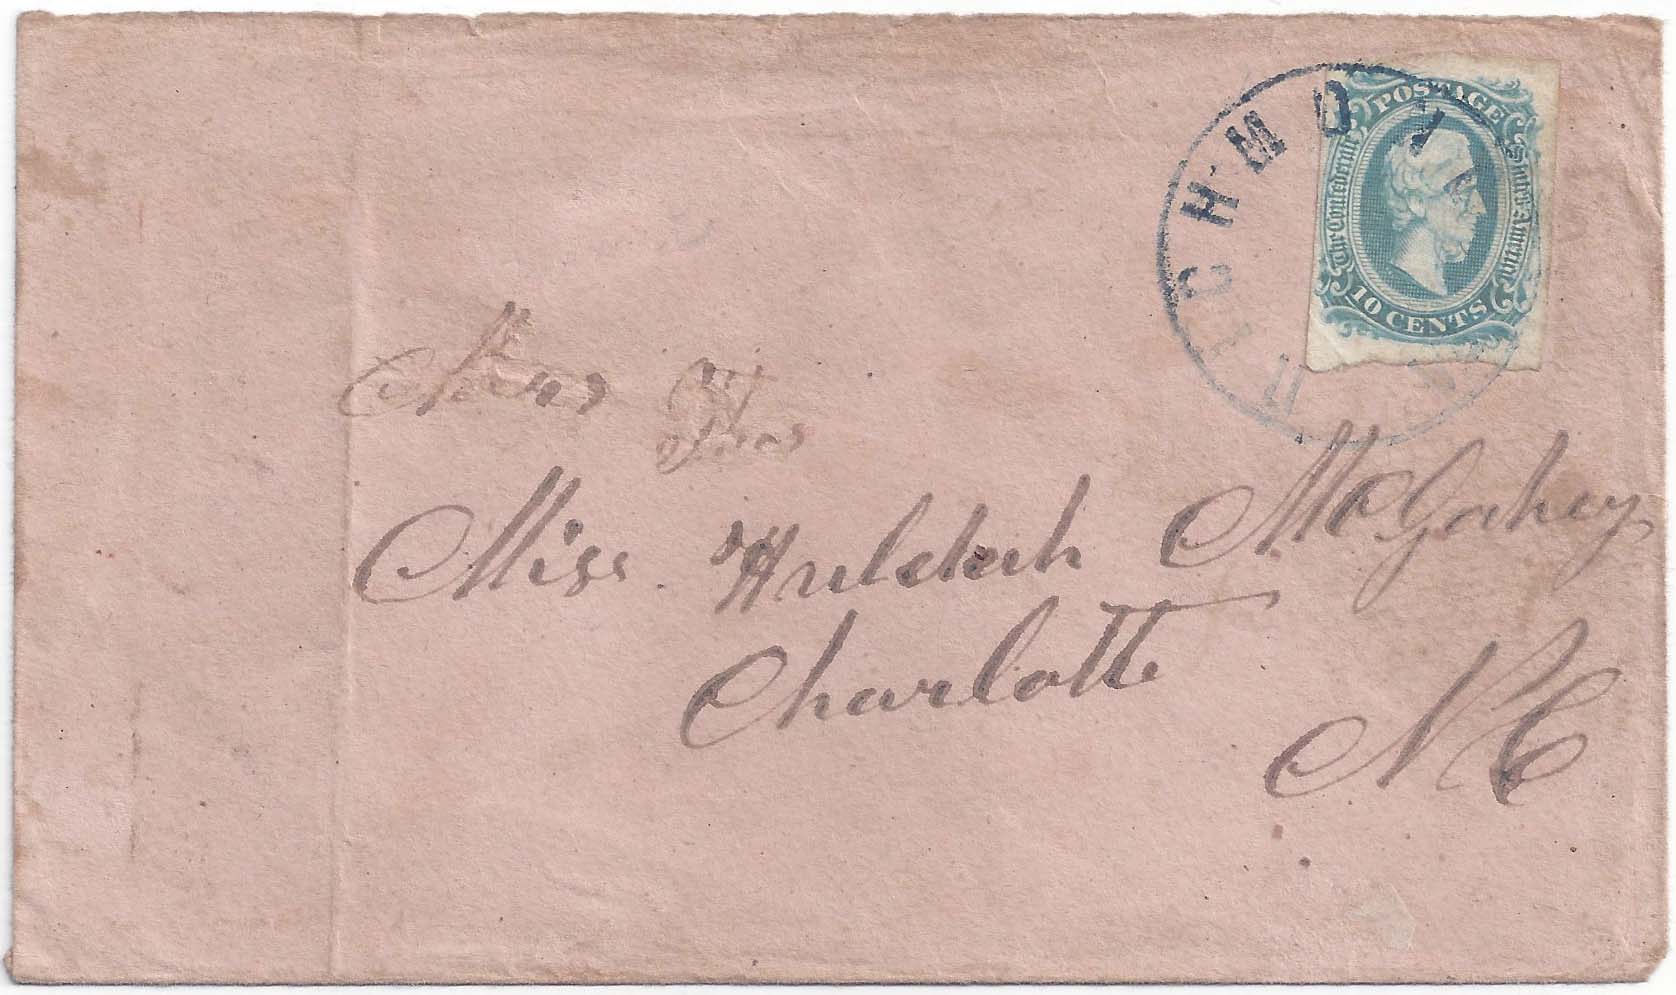 POSTAGE
The Confederate States America
10 CENTS
Miss. Huldah McGahey
Charlotte
NC